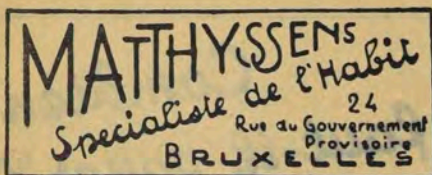 MATTHYSSENS
Specialiste de l'Habit
24
Rue du Gouvernement
Provisoire
BRUXELLES